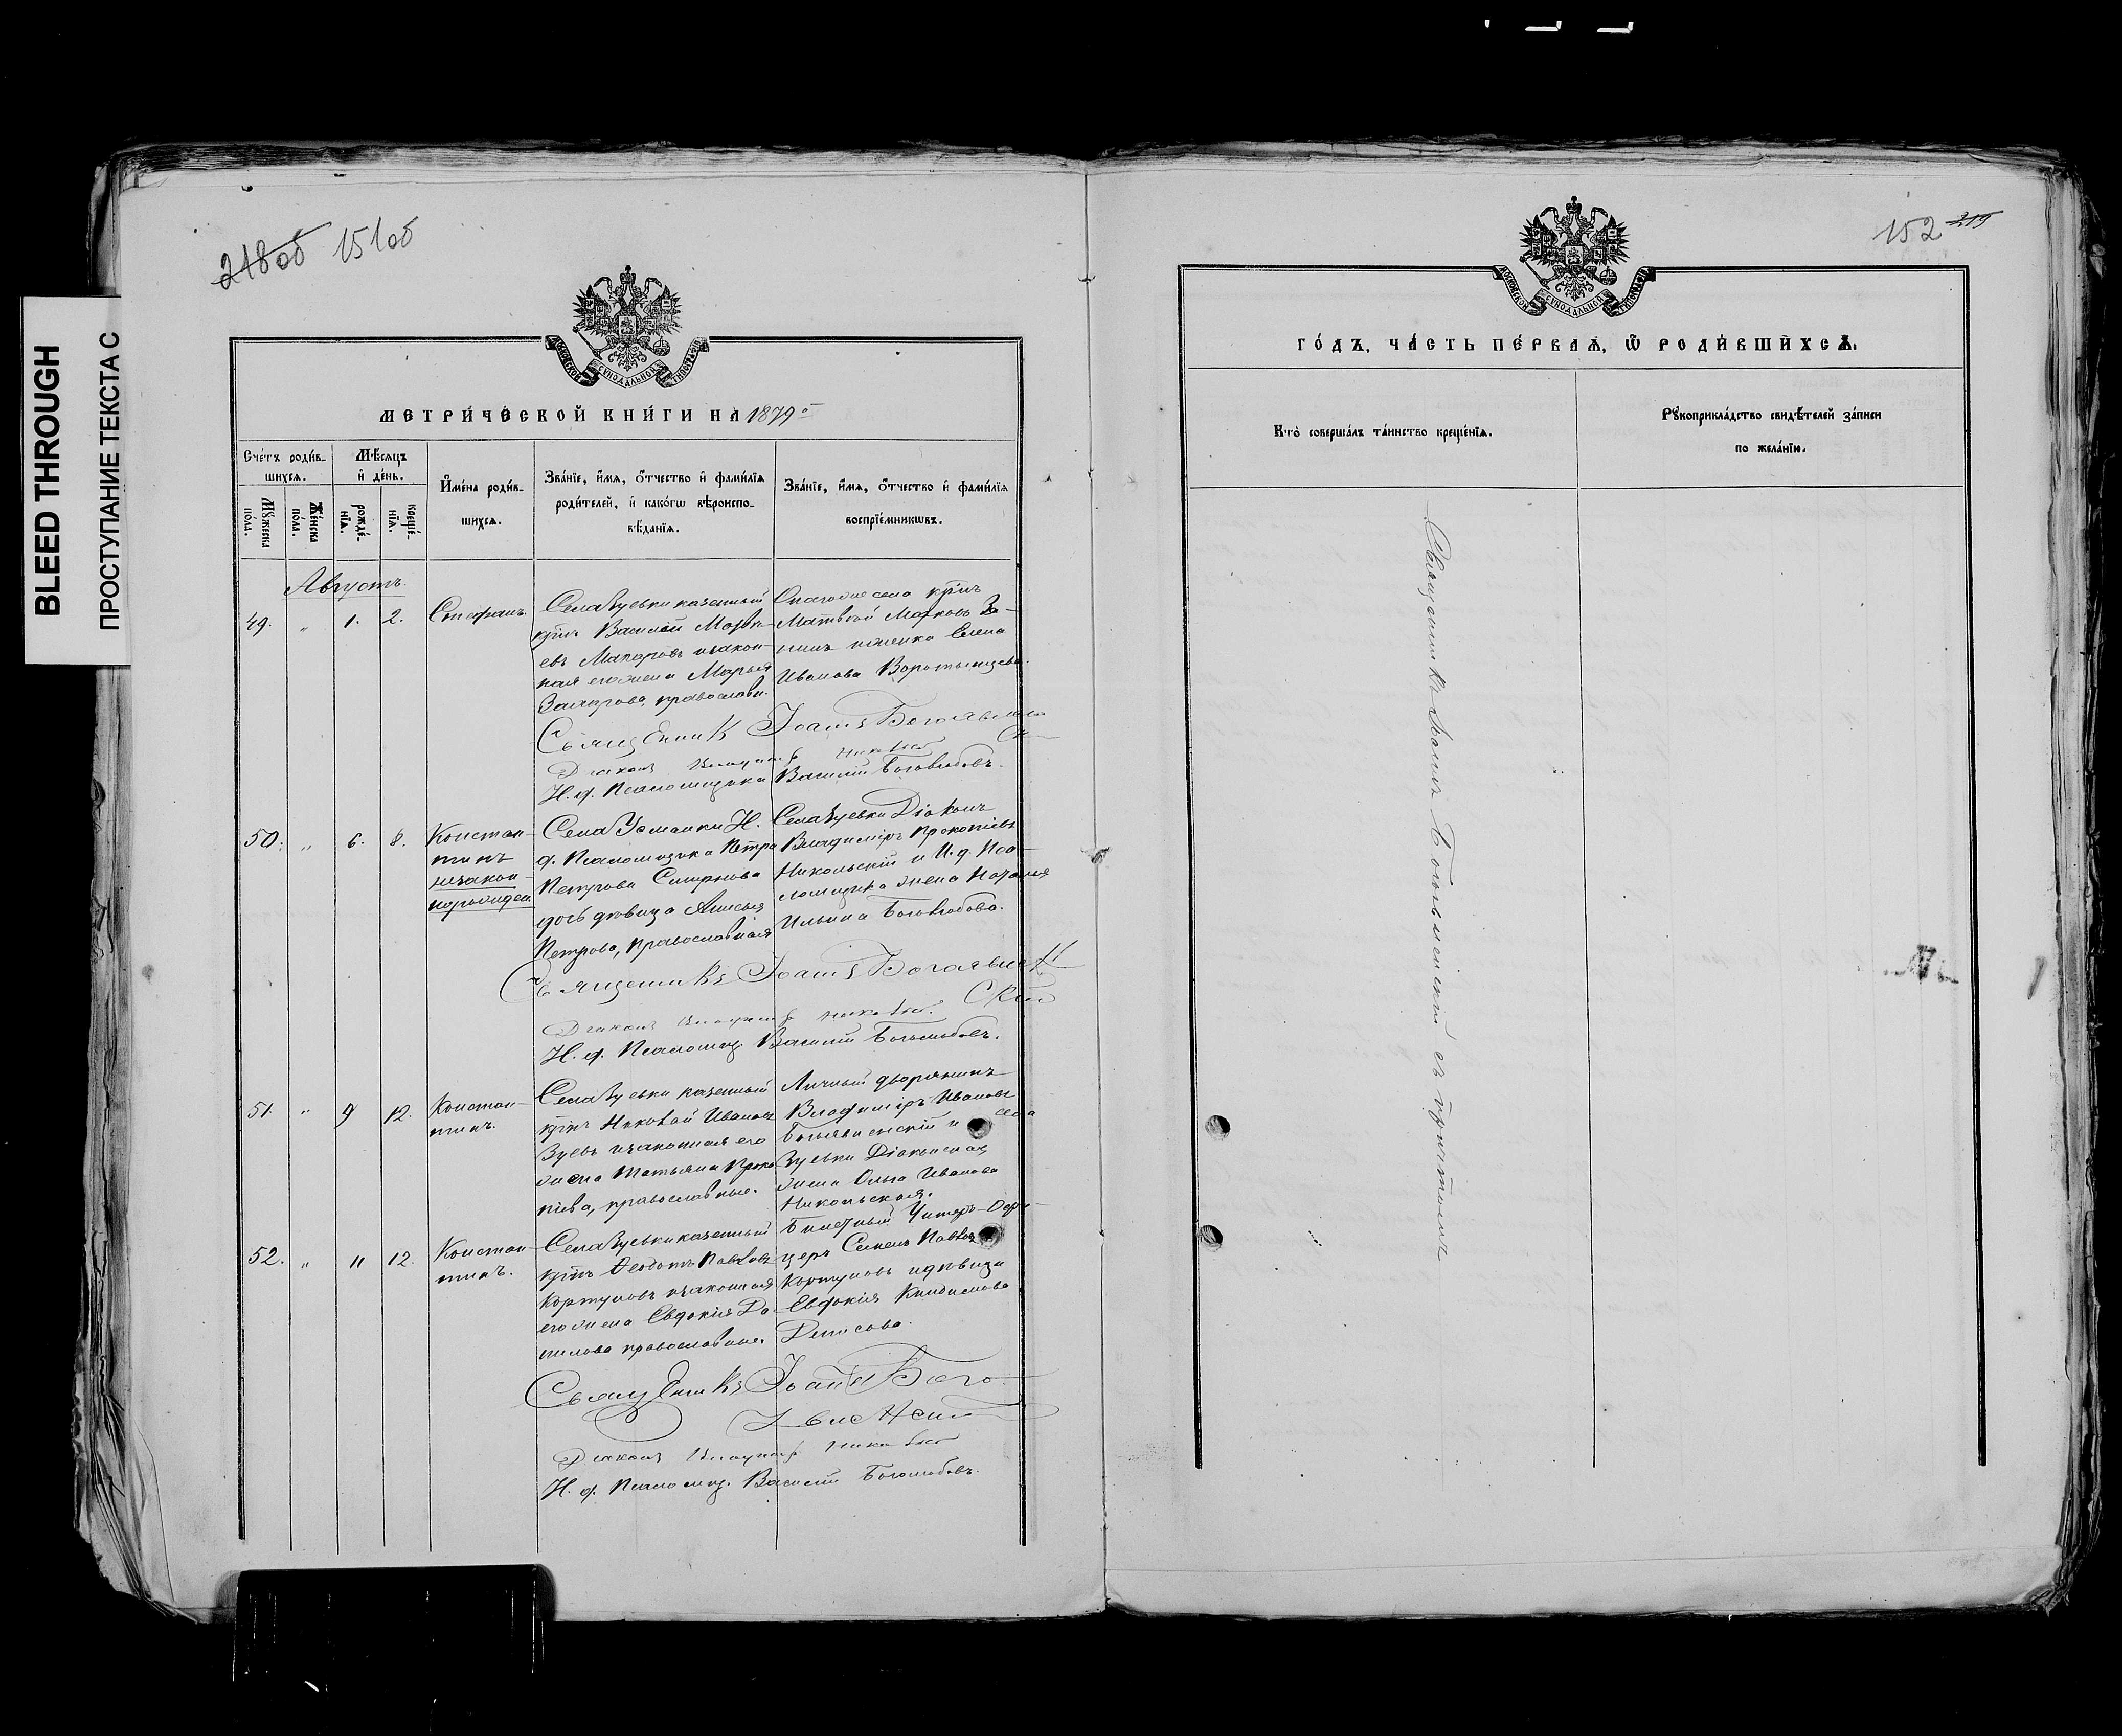 BLEED THROUGH
ПРОСТУПАНИЕ ТЕКСТА С
218об 151об
МОСКОВСКОЙ СѴНОДАЛЬНОЙ ТИПОГРАФІИ
МЕТРИ́ЧЕСКОЙ КНИ́ГИ НА 1879й
Сче́тъ роди́в-
шихсѧ.
Мѣ́сѧцъ
и҆ де́нь.
И҆мена̀ роди́в-
шихсѧ.
Зва́нїе, и҆́мѧ, ѻ҆́тчество и҆ фами́лїѧ
роди́телей, и҆ како́гѡ вѣроиспо-
вѣ́данїѧ.
Зва́нїе, и҆́мѧ, ѻ҆́тчество и҆ фами́лїѧ
воспрїе́мникѡвъ.
Мꙋ́жеска
по́ла.
Же́нска
по́ла.
рожде́-
нїѧ.
креще́-
нїѧ.
Августъ.
49. " 1. 2. Стефанъ.
Села Зуевки казенный
крѣнъ Василій
евъ Макаровъ и закон-
ная его жена Марья
Захарова, православн.
села крѣнъ
Матвей Марковъ
Елена
Иванова Воротынцева.
Священникъ Іоаннъ Богоявленскій
Діаконъ Владиміръ Никольскій
И. д. Псаломщика Василій Боголюбовъ.
50. " 6. 8. Констан-
тинъ
незакон-
норожден.
Села Усманки И.
д. Псаломщика Петра
Петрова Смирнова
дочь девица Анисья
Петрова, православная
Села Зуевки Діаконъ
Владиміръ Прокопіевъ
Никольскій и И. д. Пса-
ломщика жена Наталья
Ильина Боголюбова.
Священникъ Іоаннъ Богоявлен-
скій
Діаконъ Владиміръ Никольскій.
И. д. Псаломщ. Василій Боголюбовъ.
51. " 9 12. Констан-
тинъ.
Села Зуевки казенный
крѣнъ Николай Ивановъ
Зуевъ и законная его
жена Татьяна Проко-
піева, православные.
Личный дворянинъ
Владиміръ Ивановъ
Богоявленскій и села
Зуевки Діаконская
жена Ольга Иванова
Никольская.
52. " 11 12. Констан-
тинъ.
Села Зуевки казенный
крѣнъ Ѳеодотъ Павловъ
Кортуновъ и законная
его жена Евдокія Да-
нилова православные.
Билетный Унтеръ-Офи-
церъ Семенъ Павловъ
Кортуновъ и девица
Евдокія
Денисова.
Священникъ Іоаннъ Бого-
явленскій
Діаконъ Владиміръ Никольскій
И. д. Псаломщ. Василій Боголюбовъ.
152 219
МОСКОВСКОЙ СѴНОДАЛЬНОЙ ТИПОГРАФІИ
ГО́ДЪ, ЧА́СТЬ ПЕ́РВАѦ, Ѡ҆ РОДИ́ВШИХСѦ.
Кто̀ соверша́лъ та́инство креще́нїѧ.
Рꙋкоприкла́дство свидѣ́телей за́писи
по жела́нїю.
Священникъ Іоаннъ Богоявленскій съ причтомъ